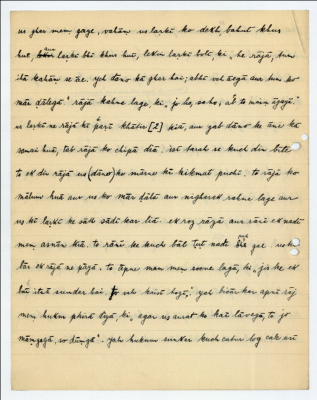 us ghar mem gaye, vahām us larkī ko dekh, bahut khus
huā, aur larkī bhī khus huī, lekin larkī bolī, ki, "he rājā, tum
ihā kahām se āe. yeh dāno kā ghar hai; abhī voh āegā aur tum ko
mār dālegā." rājā kahne lage, ki, "jo ho, so ho; ab to main āgayā."
us larkī ne rājā kī barī khātir [2] kiā, aur jab dāno ke āne kā
samai huā, tab rājā ko chipā diā. isī tarah se kuch din bīte
to ek din rājā us (dāno) ko mārne kī hikmat puchī. to rājā ko
mālum huā aur us ko mār dālā aur nigherek rahne lage aur
us kī larkī ke sāth sādī kar liā. ek roj rājā aur rānī ek nadī
mem asnān kiā. to rānī ke kuch bāl ṭuṭ nadī mem bīa gae. us ko
bār ek rājā ne pāyā. to apne man mem socne lagā, ki, "jis ke ek
bāl itnā sundar hai, to voh kaisī hogī," yeh bicār kar apnī rāj
mem hukm phirā diyā, ki, "agar us aurat ko koī lāvegā, to jo
māngegā, so dūngā". Yah hukum sunkar kuch catur log cale āe